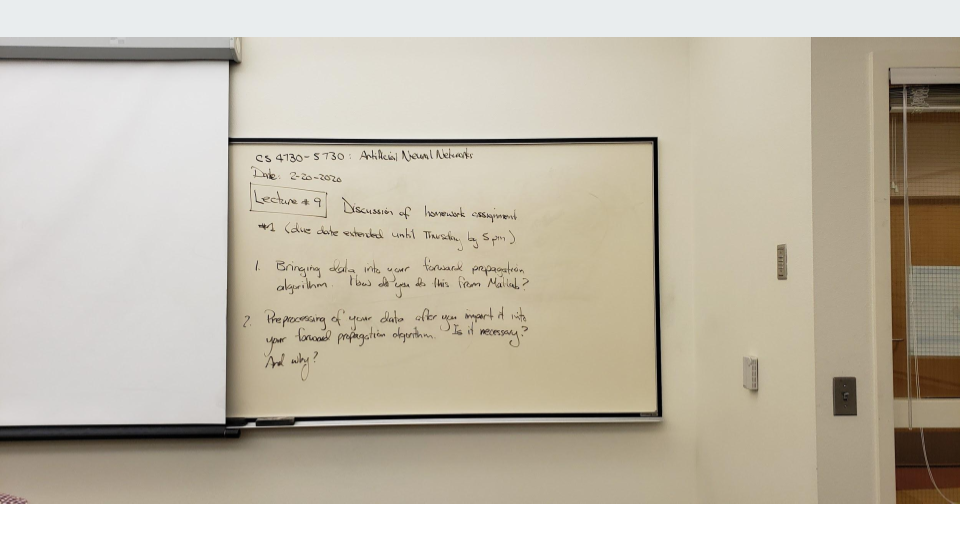 CS 4730-5730: Artificial Neural Networks
Date: 2-20-2020
Lecture #9 Discussion of homework assignment
#1 (due date extended until Thursday by 5 pm)
1. Bringing data into your forward propagation
algorithm. How do you do this from Matlab?
2. Preprocessing of your data after you import it into
your forward propagation algorithm. Is it necessary?
And why?